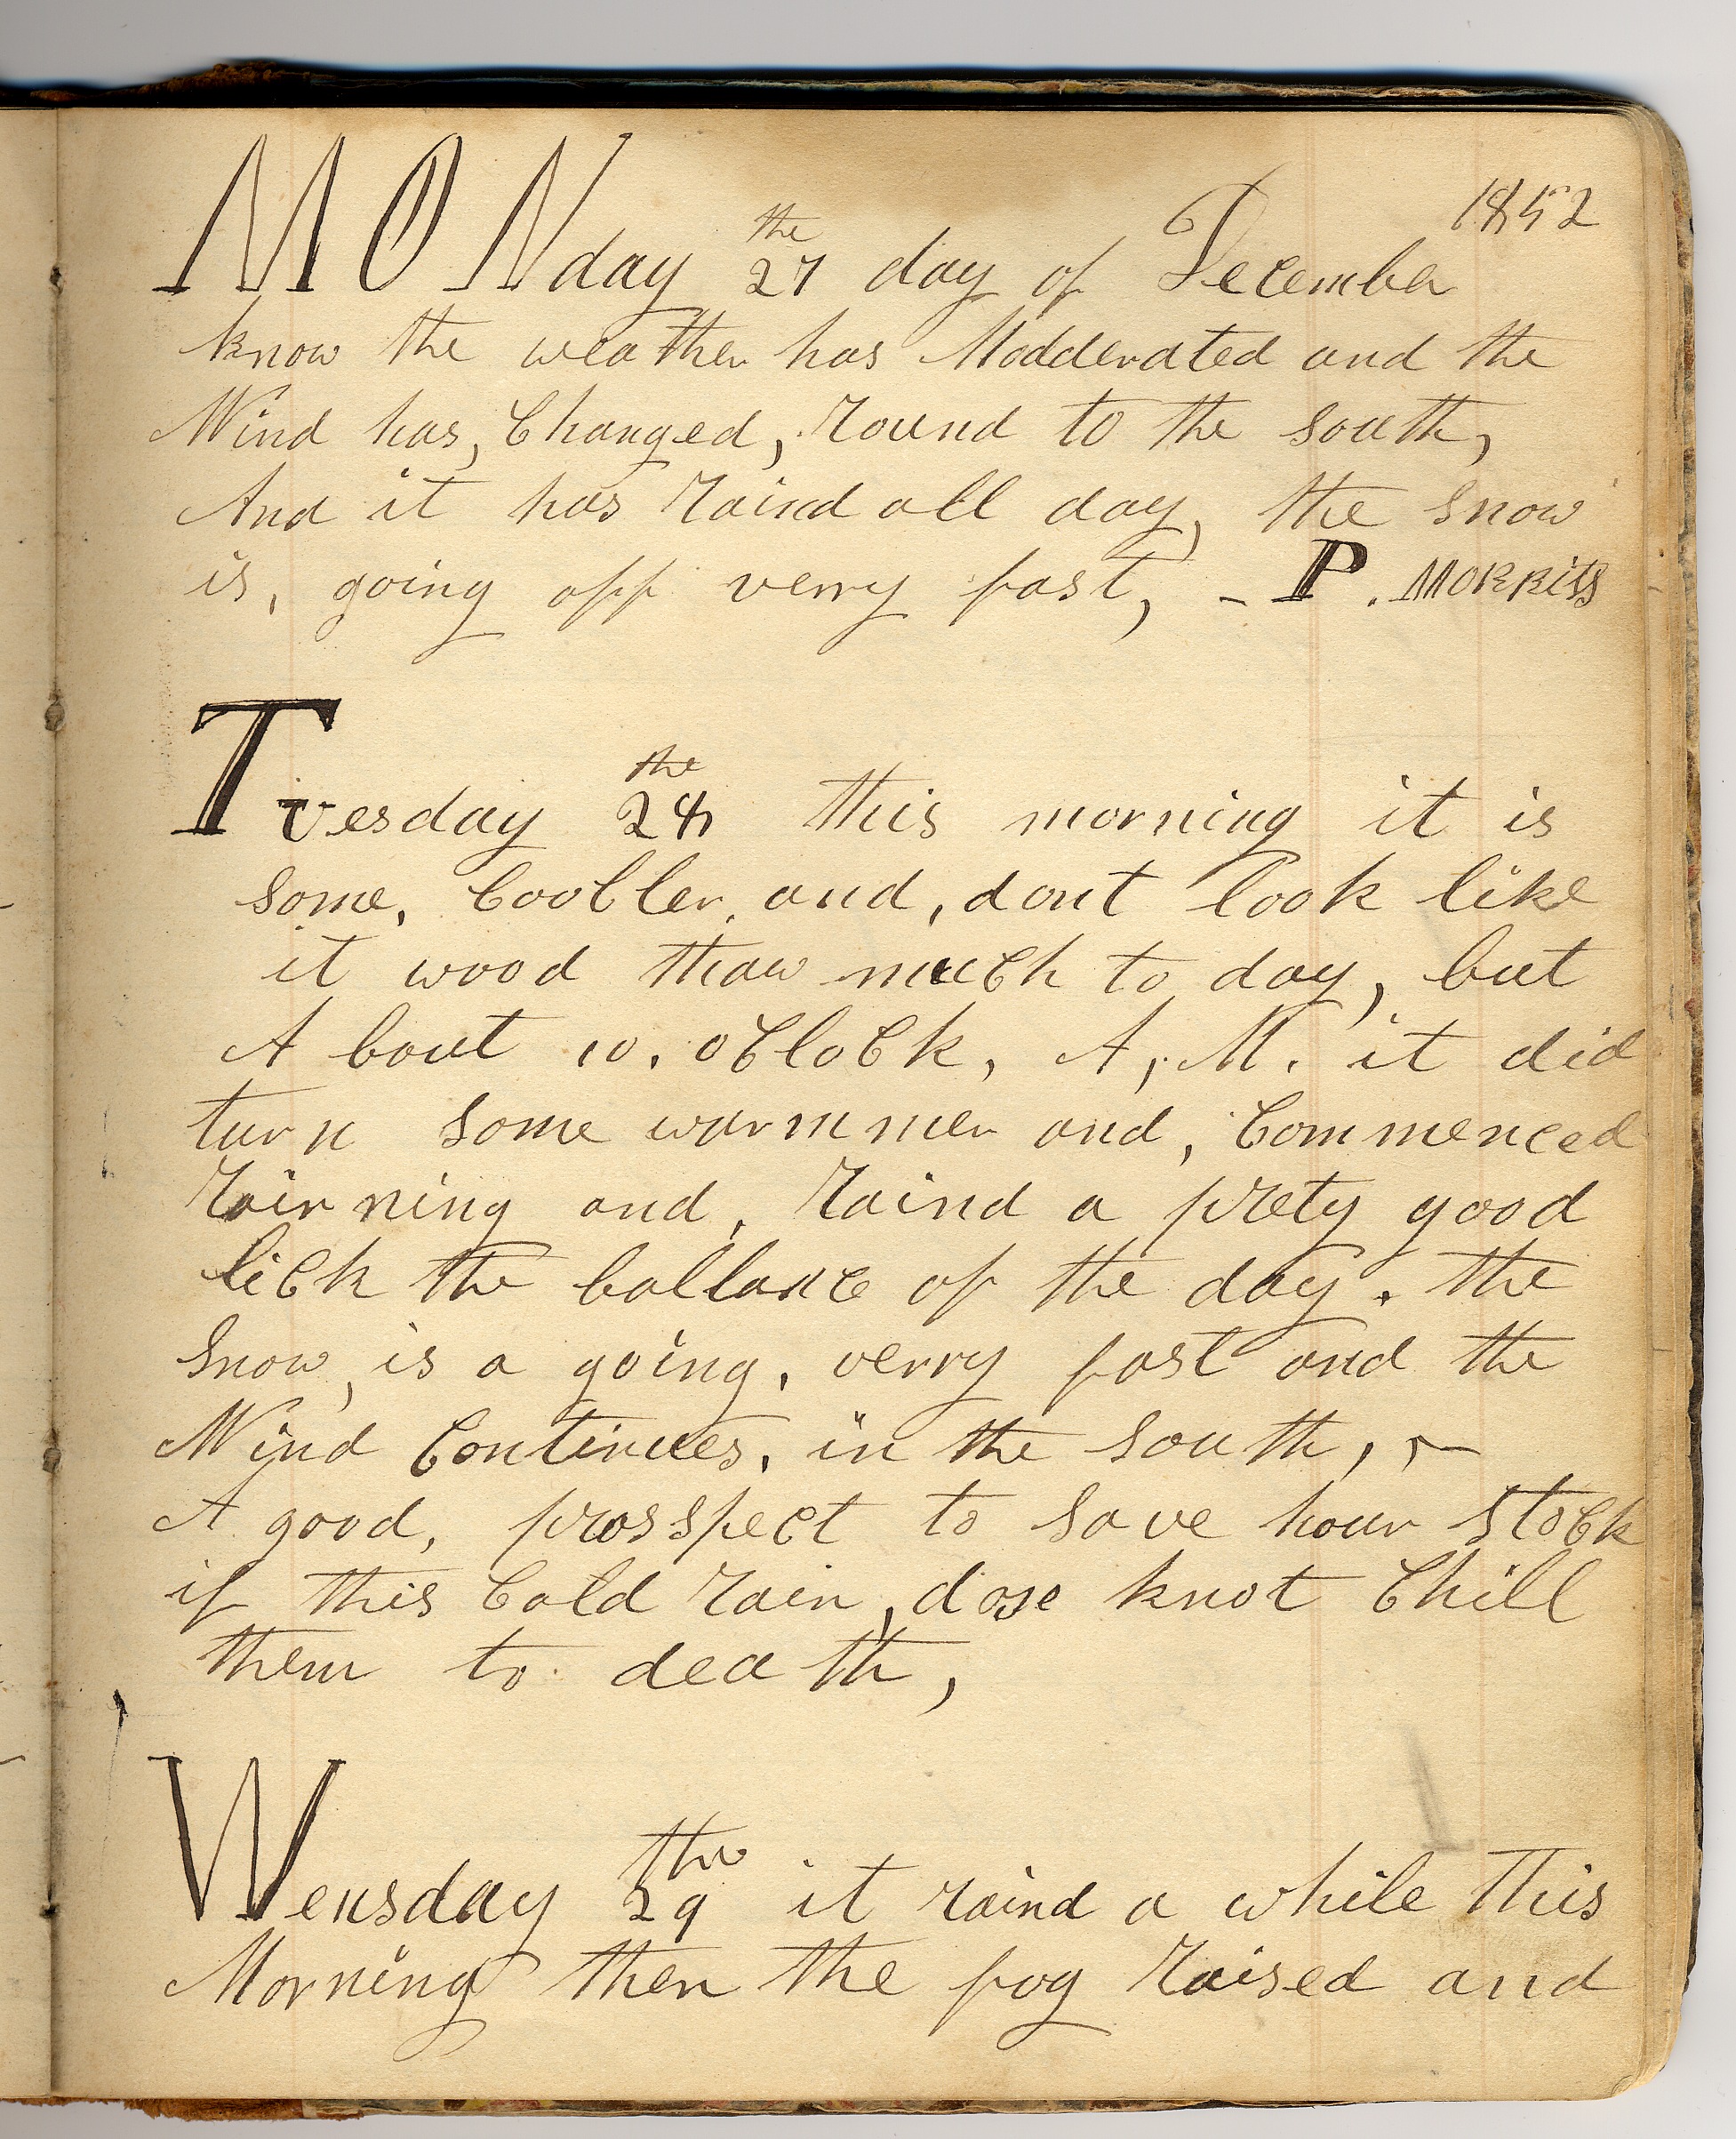 1852
MONday 27 the day of December
know the weather has Modderated and the
Wind has, Changed, round to the south,
And it has raind all day, the snow
is, going off verry fast, - P. MORRISS
Tuesday 28 the this morning it is
some, Cooller, and, dont look like
it wood thaw much to day, but
A bout 10. oCloCk, A, M. it did
turn some warmmer and, Commenced
rainning and, raind a prety good
liCk the ballance of the day. the
Snow, is a going, verry fast and the
Wind Continues, in the south, , -
A good, prosspect to save hour stoCk
if this Cold rain, dose knot Chill
them to death,
Wensday 29 the it raind a while This
Morning then the fog raised and